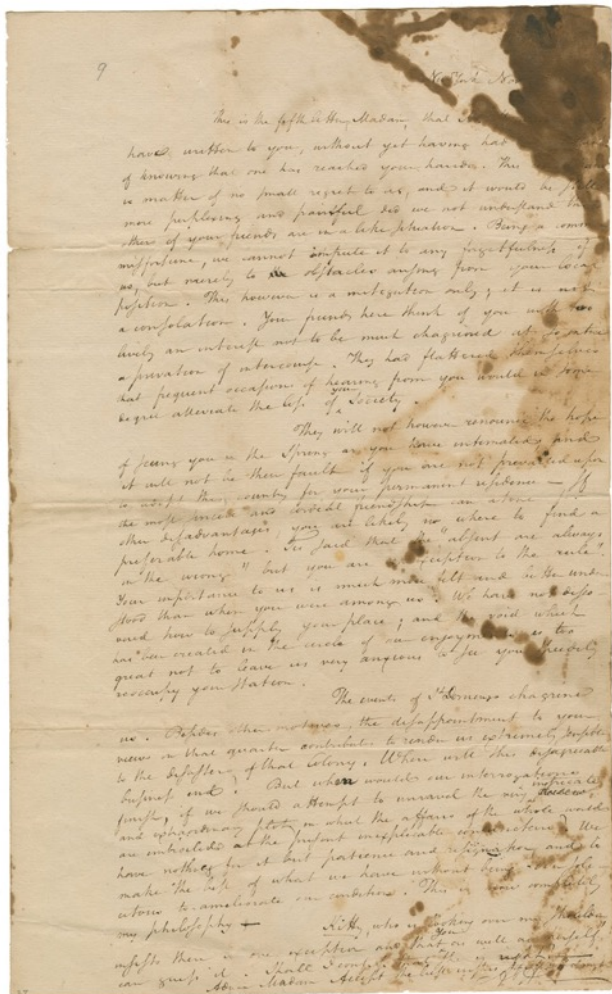 9
New York Nov
This is the fifth letter, Madam, that I
have written to you, without yet having had
of knowing that one has reached your hands. This
is matter of no small regret to us, and it would be still
more perplexing and painful did we not understand that
others of your friends are in a like situation. Being a common
misfortune, we cannot impute it to any forgetfulness of
us, but merely to obstacles arising from your local
position. This however is a mitigation only; it is not
a consolation. Your friends here think of you with too
lively an interest not to be much chagrined at
a privation of intercourse. They had flattered themselves
that frequent occasions of hearing from you would in some
degree alleviate the loss of your Society.
They will not however renounce the hope
of seeing you in the Spring as you have intimated, and
it will not be their fault if you are not prevailed upon
to adopt this country for your permanent residence — If
the most sincere and cordial friendship can atone for
other disadvantages, you are likely no where to find a
preferable home. Tis said that the "absent are always
in the wrong" but you are exception to the rule"
Your importance to us is much more felt and better under
stood than when you were among us. We have not disco
vered how to supply your place; and the void which
has been created in the circle of our enjoyments is too
great not to leave us very anxious to see you speedily
reoccupy your station.
The events of St Domingo chagrined
us. Besides other motives, the disappointment to your
views in that quarter contributes to render us extremely sensible
to the disasters of that Colony. When will this disagreeable
business end? But when would our interrogations
finish, if we should attempt to unravel the very intricate
and extraordinary plots in which the affairs of the whole world
are embroiled at the present inexplicable conjuncture? We
have nothing for it but patience and resignation and to
make the best of what we have without being
to ameliorate our condition. This is now completely
my philosophy —
Kitty, who is looking over my shoulder
insists there is one exception and that you as well as herself
can guess it. Shall I confess that she is right
Adieu Madam Accept the best wishes